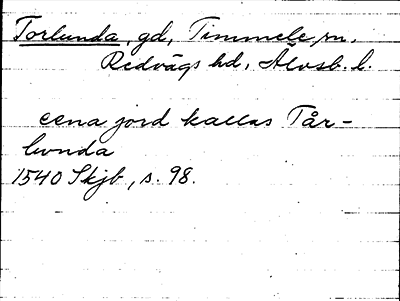 Torlunda, gd, Timmele sn,
Redvägs hd, Älvsb. l.
eena jord kallas Tår-
lwnda
1540 Skjb, s. 98.